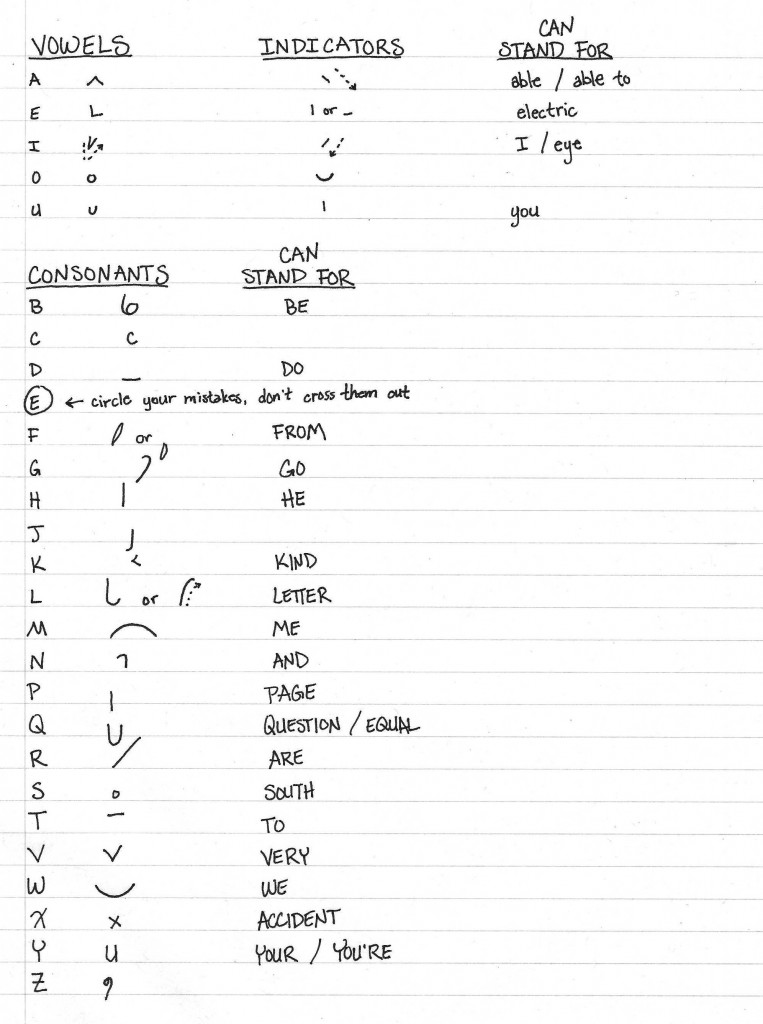 CAN
VOWELS INDICATORS STAND FOR
A able / able to
E 1 or - electric
I I / eye
O o
U u you
CAN
CONSONANTS STAND FOR
B BE
C c
D DO
E ← circle your mistakes, don't cross them out
F or FROM
G GO
H HE
J
K KIND
L or LETTER
M ME
N AND
P PAGE
Q QUESTION / EQUAL
R ARE
S SOUTH
T TO
V v VERY
W WE
X x ACCIDENT
Y u YOUR / YOU'RE
Z